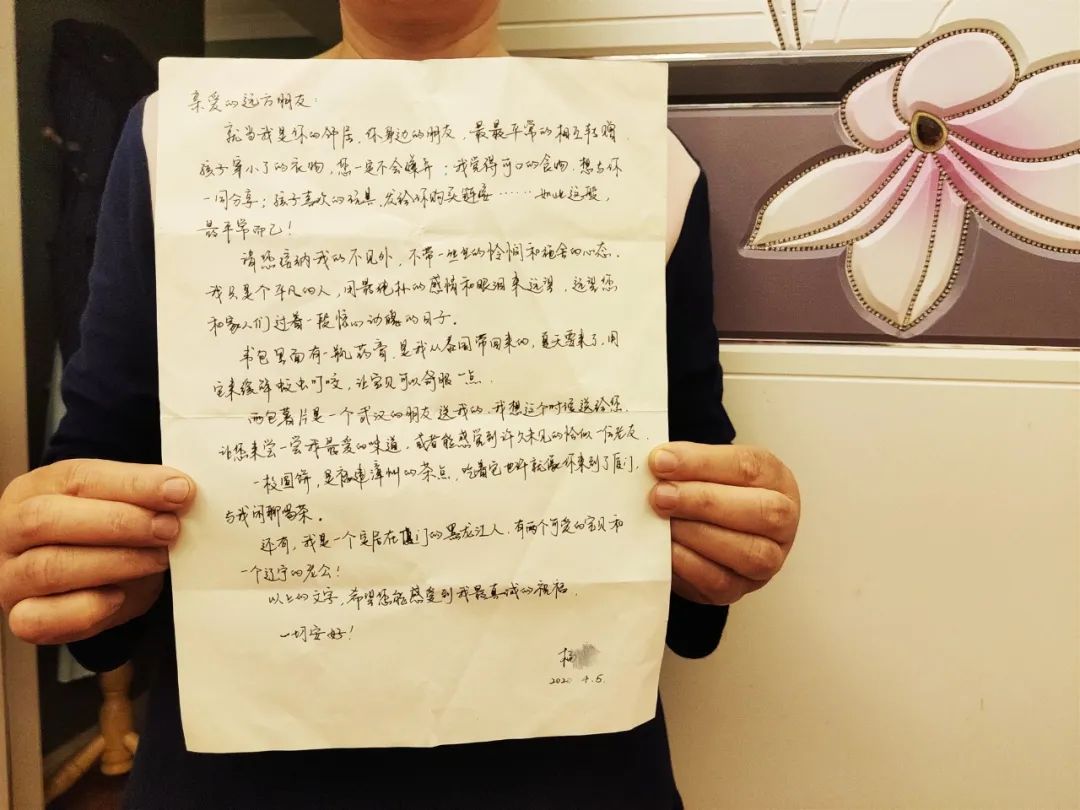 亲爱的远方朋友:
就当我是你的邻居,你身边的朋友,最最平常的相互转赠,
孩子穿小了的衣物,您一定不会嫌弃;我觉得可口的食物,想与你
一同分享;孩子喜欢的玩具,发给你购买链接……如此这般,
最平常而已!
请您接纳我的不见外,不带一丝丝的怜悯和施舍的心态。
我只是个平凡的人,用最纯朴的感情和眼泪来远望,远望您
和家人们过着一段惊心动魄的日子。
书包里面有一瓶药膏,是我从泰国带回来的,夏天要来了,用
它来缓解蚊虫叮咬,让宝贝可以舒服一点.
两包薯片是一个武汉的朋友送我的,我想这个时候送给您,
让您来尝一尝我最爱的味道,或者能感觉到许久未见的恰似一位老友.
一枚圆饼,是福建漳州的茶点,吃着它也许就像你来到了厦门,
与我闲聊喝茶。
还有,我是一个定居在厦门的黑龙江人,有两个可爱的宝贝和
一个辽宁的老公!
以上的文字,希望您能感受到我最真诚的祝福.
一切安好!
2020 4.5.